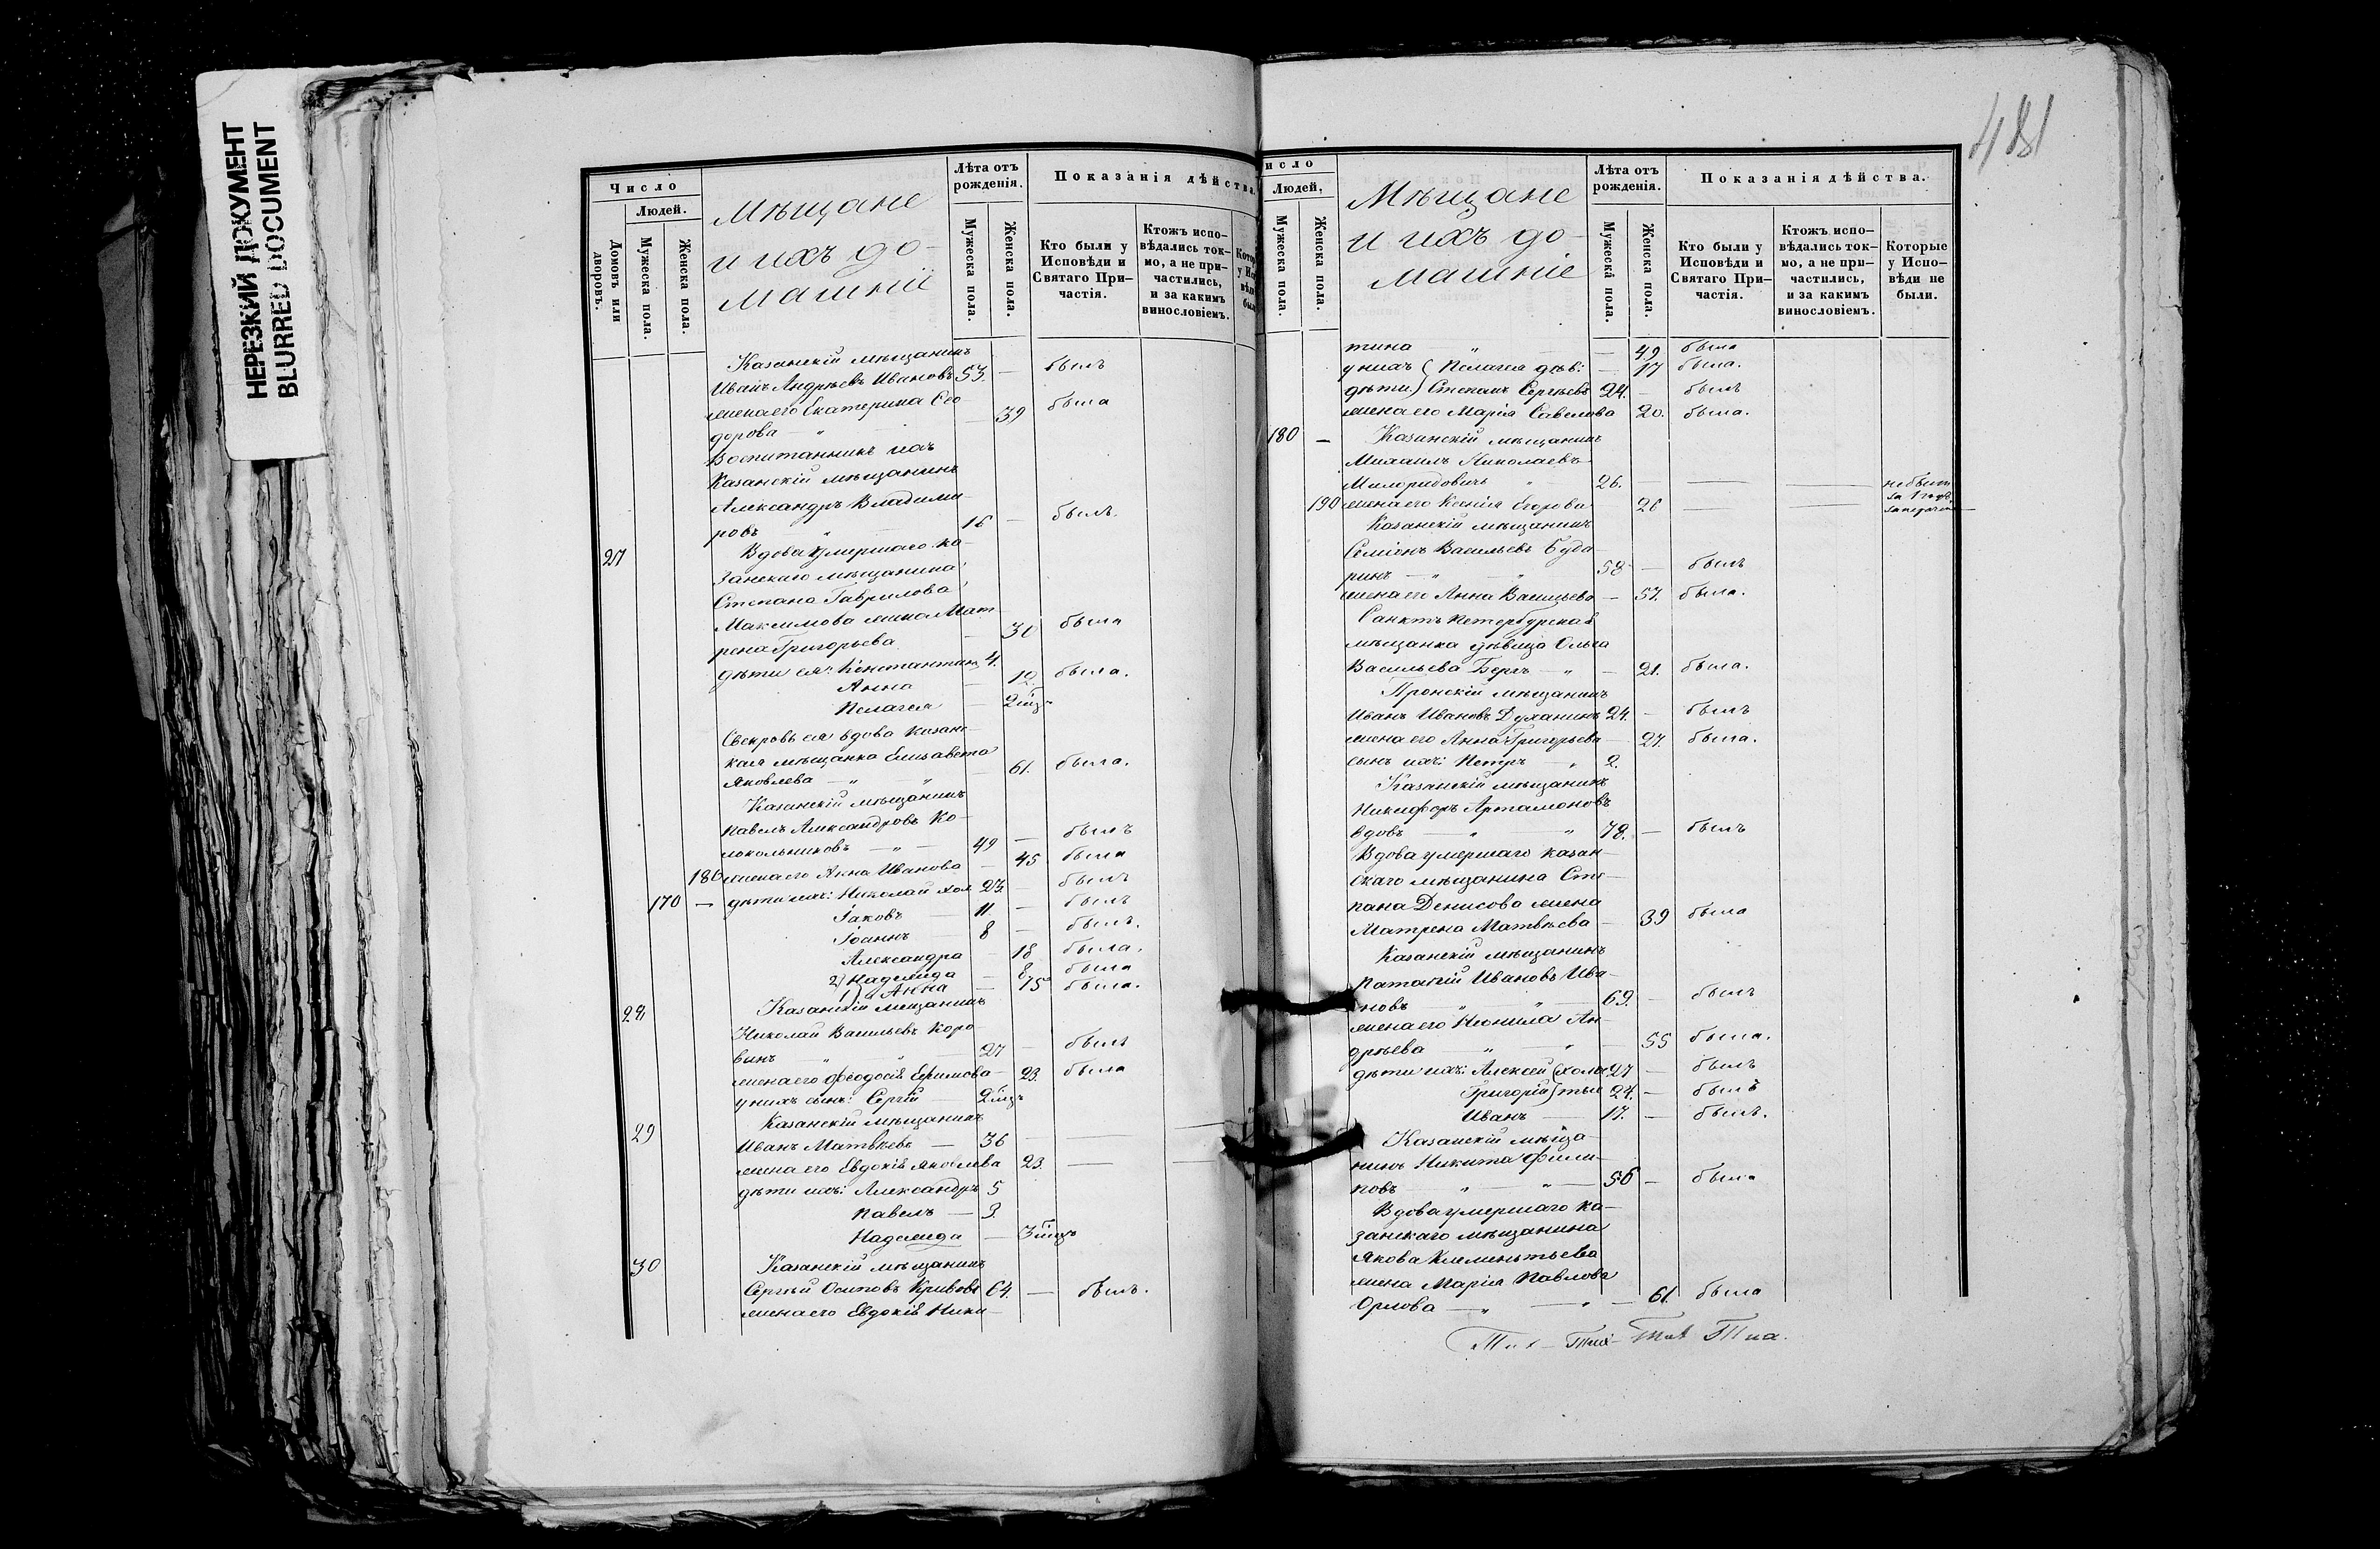 НЕРЕЗКИЙ ДОКУМЕНТ
BLURRED DOCUMENT
481
Число
Людей.
Домовъ или дворовъ.
Мужеска пола.
Женска пола.
Мѣщане
и ихъ до-
машніе
Лѣта отъ рожденія.
Мужеска пола.
Женска пола.
Показанія дѣйства.
Кто были у Исповѣди и Святаго При-частія.
Ктожъ испо-вѣдались ток-мо, а не при-частились, и за какимъ винословіемъ.
Казанскій мѣщанинъ
Иванъ Андреевъ Ивановъ 53. — былъ
жена его Екатерина Ѳео-
дорова — " — 39 была
Воспитанникъ ихъ
Казанскій мѣщанинъ
Александръ Владими-
ровъ " 16 — былъ.
27 Вдова умершаго ка-
занскаго мѣщанина
Степана Гаврилова
Максимова жена Мат-
рена Григорьева — 30 была
дѣти ея: Константинъ 4.
Анна — 12. была.
Пелагея — 2 мѣс.
Свекровь ея вдова Казанс-
кая мѣщанка Елисавета
Яковлева — " " — 61. была.
Казанскій мѣщанинъ
Павелъ Александровъ Ко-
локольниковъ — " — 49 — былъ
180 жена его Анна Иванова — 45 была
170 — дѣти ихъ: Николай хол. 23. — былъ
Іаковъ 11 — былъ
Іоаннъ 8 — былъ.
Александра — 18 была.
2) Надежда — 8 была
1) Анна — 15 была.
28 Казанскій мѣщанинъ
Николай Васильевъ Коро-
винъ " " 27 — былъ
жена его Ѳеодосія Ефимова — 23. была
у нихъ сынъ: Сергій — 2 мѣс.
29 Казанскій мѣщанинъ
Иванъ Матвѣевъ — 36 — —
жена его Евдокія Яковлева 23. —
дѣти ихъ: Александръ 5
Павелъ — 3.
Надежда — 3 мѣс.
30 Казанскій мѣщанинъ
Сергѣй Осиповъ 64. — былъ.
жена его Евдокія Ники-
исло
Людей,
Мужеска пола.
Женска пола.
Мѣщане
и ихъ до-
машніе
Лѣта отъ рожденія.
Мужеска пола.
Женска пола.
Показанія дѣйства.
Кто были у Исповѣди и Святаго При-частія.
Ктожъ испо-вѣдались ток-мо, а не при-частились, и за какимъ винословіемъ.
Которые у Испо-вѣди не были.
тина " — 49 была
у нихъ ( Пелагея дѣв: — 17 была.
дѣти ) Степанъ Сергѣевъ 24. — былъ
жена его Марія Савелова 20. была.
180 — Казанскій мѣщанинъ
Михаилъ Николаевъ
Милорадовичъ " 26. — — —
190 жена его Ксенія Егорова 26 — —
Казанскій мѣщанинъ
Семіонъ Васильевъ Буда-
ринъ — " " 58 — былъ
жена его Анна Васильева — 57. была.
Санктъ Петербургская
мѣщанка дѣвица Ольга
Васильева Бергъ — " — 21. была.
Пронскій мѣщанинъ
Иванъ Ивановъ Духанинъ 24. — былъ
жена его Анна Григорьева — 27. была.
сынъ ихъ: Петръ — " 2.
Казанскій мѣщанинъ
Никифоръ Артамоновъ
вдовъ — " " 78. — былъ
Вдова умершаго казан-
скаго мѣщанина Сте-
пана Денисова жена
Матрена Матвѣева — 39 была
Казанскій мѣщанинъ
Ипатій Ивановъ Ива-
новъ " " 69. — былъ
жена его Неонила Ан-
дреева " " — 55 была.
дѣти ихъ: Алексей (холос 27 — былъ
Григорій) тые 24. — былъ
Иванъ — 17. — былъ.
Казанскій мѣща-
нинъ Никита Фили-
повъ — " — " — 56 — была
Вдова умершаго ка-
занскаго мѣщанина
Якова Климентьева
жена Марія Павлова
Орлова — " — " — 61. была